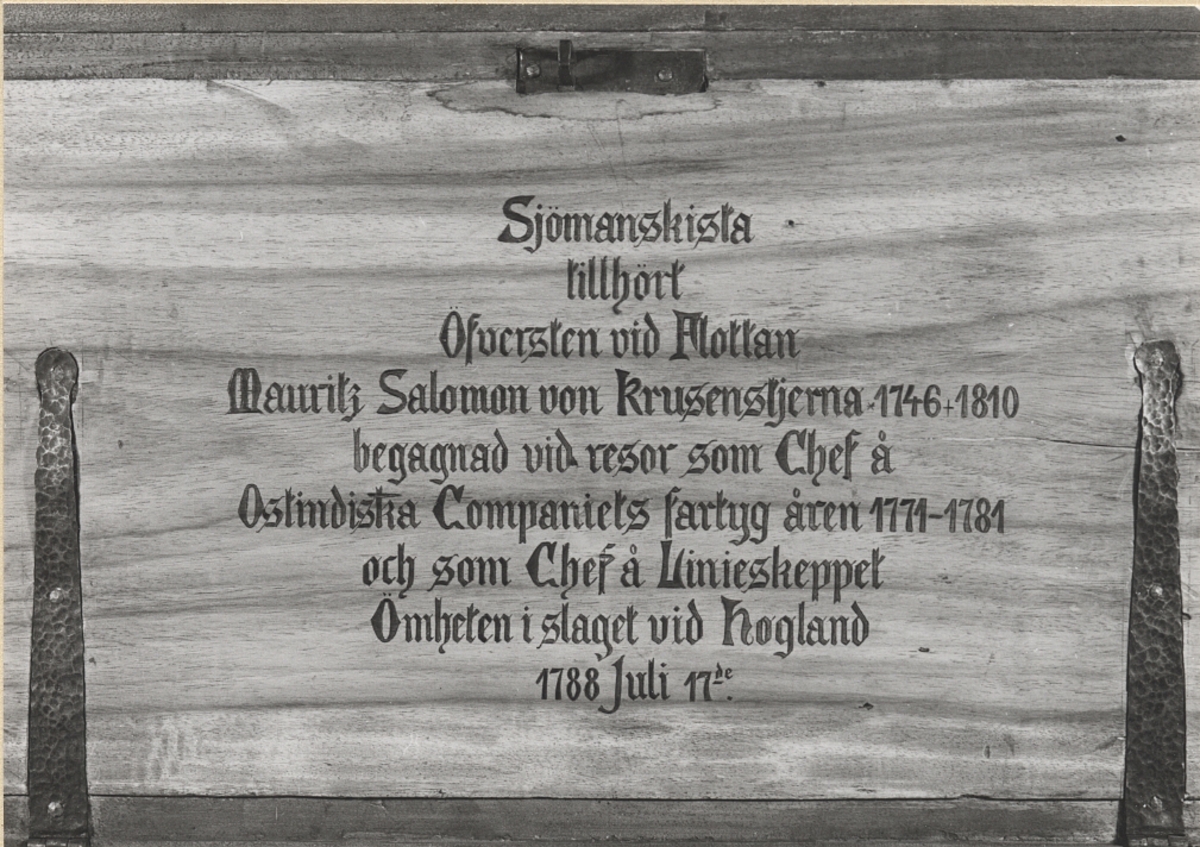 Sjömanskista
tillhört
Öfversten vid Flottan
Mauritz Salomon von Krusenstjerna · 1746 + 1810
begagnad vid resor som Chef å
Ostindiska Companiets fartyg åren 1771-1781
och som Chef å Linieskeppet
Ömheten i slaget vid Hogland
1788 Juli 17de.